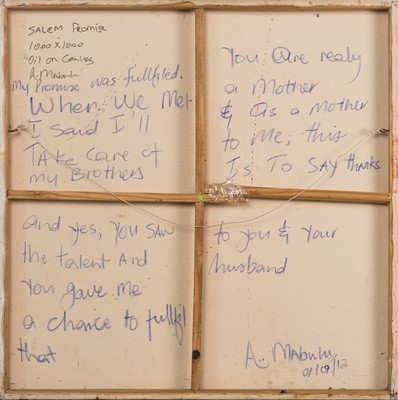 SALEM Promise
1000 x 1000
Oil on Canvas
A. Mabulu
my Promise was fullfiled.
When We Met
I Said I'll
TAKE Care of
my Brothers
You are realy
a Mother
& as a mother
to Me, this
Is To SAY thanks
and yes, you SAW
the talent And
You gave me
a chance to fullfil
that
to you & your
husband
A. Mabulu
01/09/12